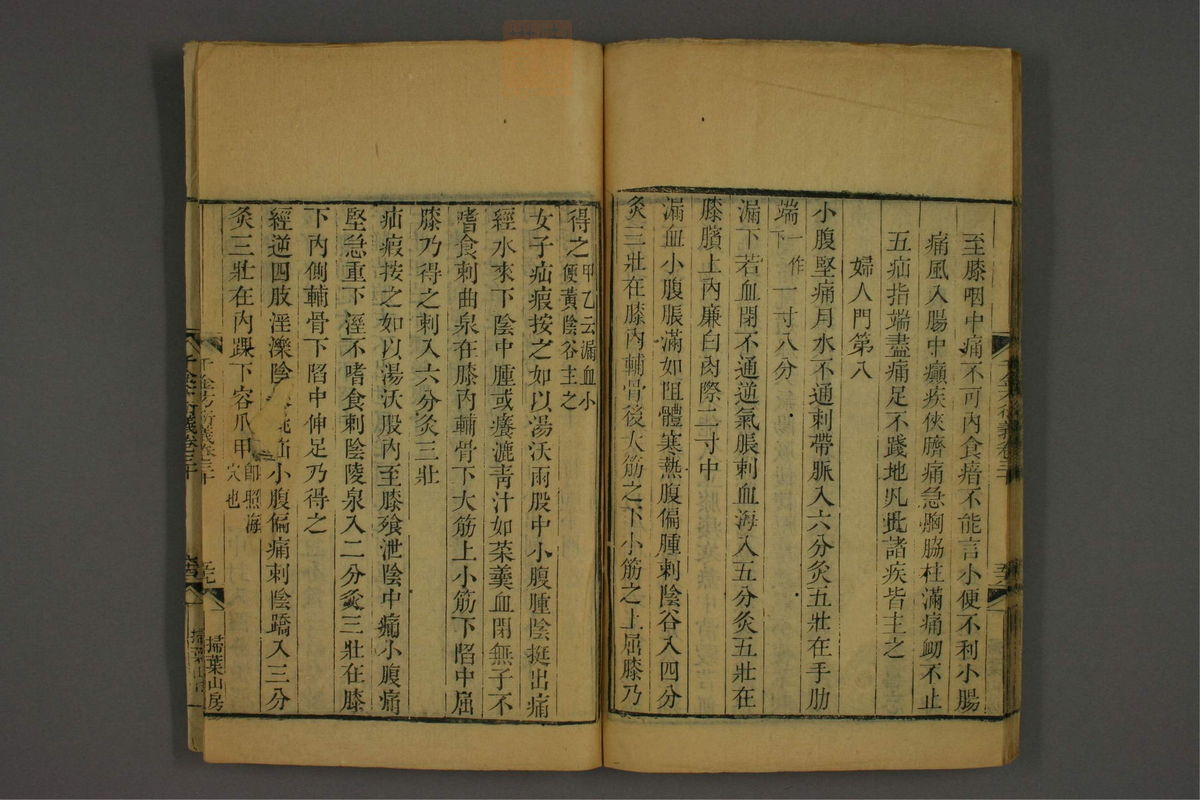 至膝咽中痛不可內食瘖不能言小便不利小腸
痛風入腸中癲疾俠臍痛急胸脇柱滿痛衂不止
五疝指端盡痛足不踐地凡此諸疾皆主之
婦人門第八
小腹堅痛月水不通刺帶脈入六分灸五壯在手肋
端一作下一寸八分
漏下若血閉不通逆氣脹刺血海入五分灸五壯在
膝臏上內廉白肉際二寸中
漏血小腹脹滿如阻體寒熱腹偏腫刺陰谷入四分
灸三壯在膝內輔骨後大筋之下小筋之上屈膝乃
得之甲乙云漏血小便黃陰谷主之
女子疝瘕按之如以湯沃兩股中小腹腫陰挺出痛
經水來下陰中腫或癢漉青汁如菜羹血閉無子不
嗜食刺曲泉在膝內輔骨下大筋上小筋下陷中屈
膝乃得之刺入六分灸三壯
疝瘕按之如以湯沃股內至膝飱泄陰中痛小腹痛
堅急重下溼不嗜食刺陰陵泉入二分灸三壯在膝
下內側輔骨下陷中伸足乃得之
經逆四肢淫濼陰疝小腹偏痛刺陰蹻入三分
灸三壯在內踝下容爪甲卽照海穴也
千金方衍義卷三十
掃葉山房